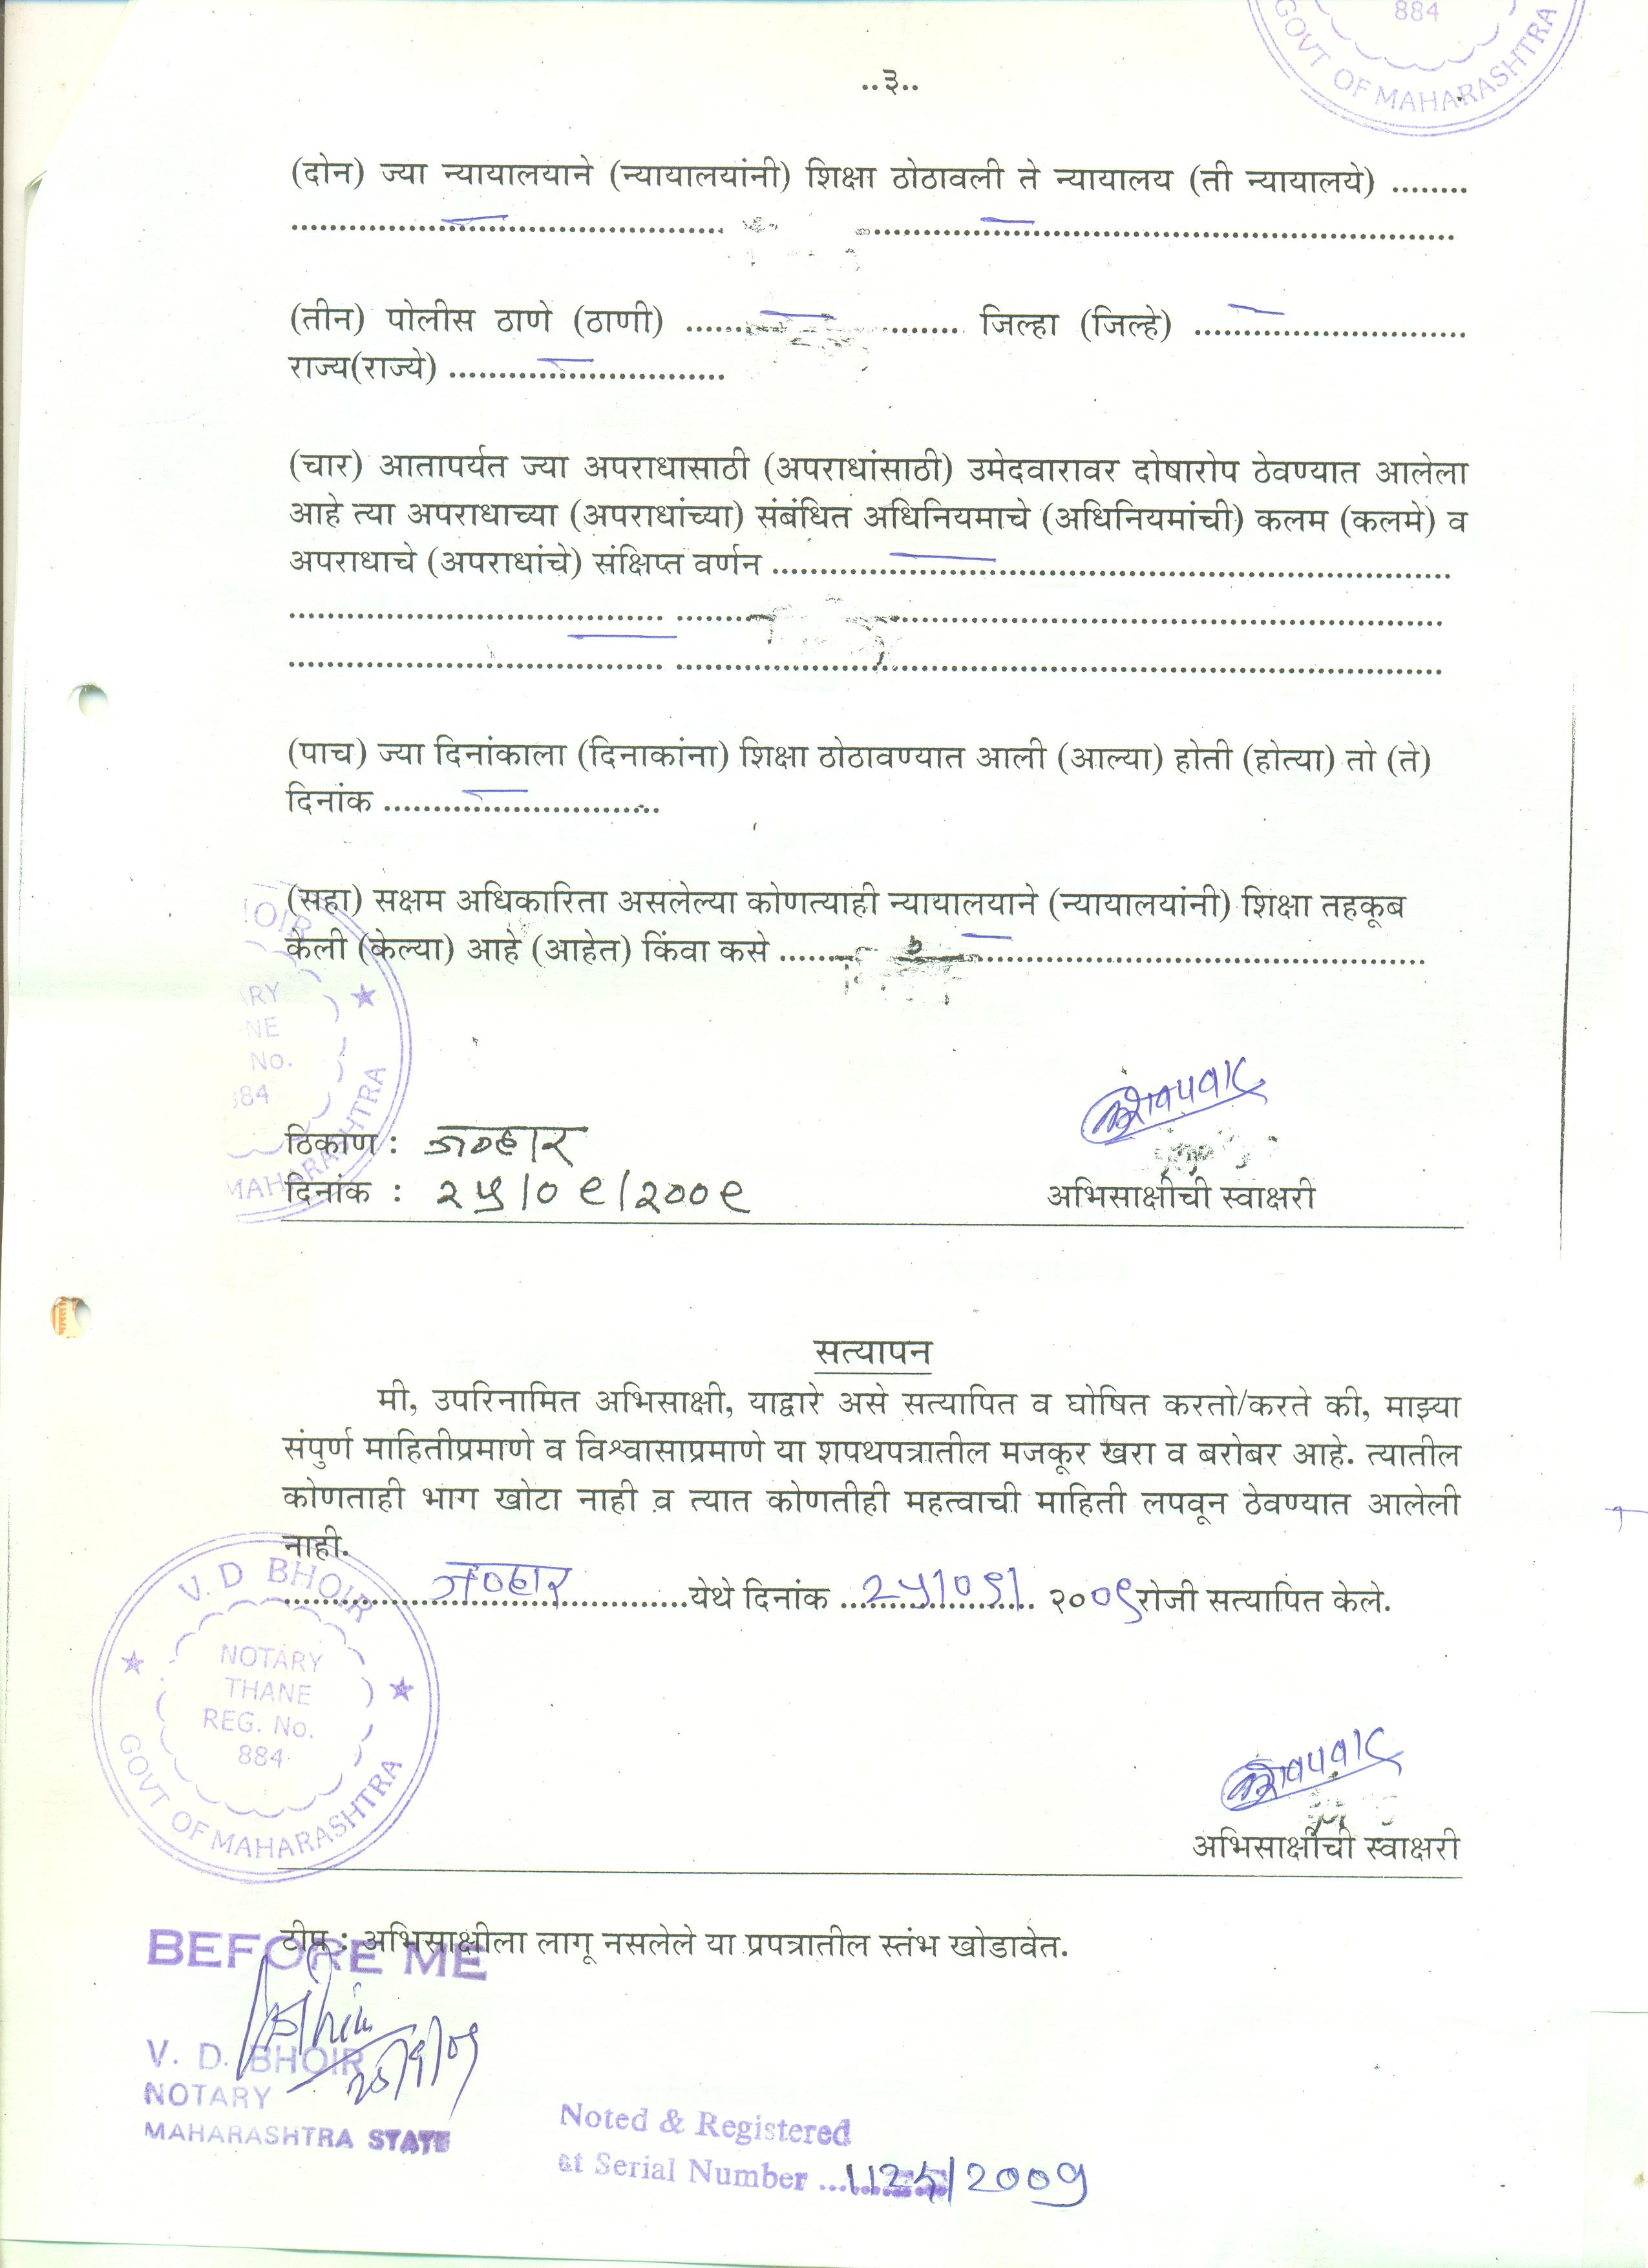 884
GOVT OF MAHARASHTRA
..३..
(दोन) ज्या न्यायालयाने (न्यायालयांनी) शिक्षा ठोठावली ते न्यायालय (ती न्यायालये) ........
(तीन) पोलीस ठाणे (ठाणी) ........ ........ जिल्हा (जिल्हे) ........
राज्य(राज्ये) ........
(चार) आतापर्यत ज्या अपराधासाठी (अपराधांसाठी) उमेदवारावर दोषारोप ठेवण्यात आलेला
आहे त्या अपराधाच्या (अपराधांच्या) संबंधित अधिनियमाचे (अधिनियमांची) कलम (कलमे) व
अपराधाचे (अपराधांचे) संक्षिप्त वर्णन ........
(पाच) ज्या दिनांकाला (दिनाकांना) शिक्षा ठोठावण्यात आली (आल्या) होती (होत्या) तो (ते)
दिनांक ........
(सहा) सक्षम अधिकारिता असलेल्या कोणत्याही न्यायालयाने (न्यायालयांनी) शिक्षा तहकूब
केली (केल्या) आहे (आहेत) किंवा कसे ........
ठिकाण : जव्हार
दिनांक : २५/०९/२००९
अभिसाक्षीची स्वाक्षरी
सत्यापन
मी, उपरिनामित अभिसाक्षी, याद्वारे असे सत्यापित व घोषित करतो/करते की, माझ्या
संपुर्ण माहितीप्रमाणे व विश्वासाप्रमाणे या शपथपत्रातील मजकूर खरा व बरोबर आहे. त्यातील
कोणताही भाग खोटा नाही व त्यात कोणतीही महत्वाची माहिती लपवून ठेवण्यात आलेली
नाही.
जव्हार येथे दिनांक २५/०९/ २००९ रोजी सत्यापित केले.
V. D BHOIR
NOTARY
THANE
REG. No.
884
GOVT OF MAHARASHTRA
अभिसाक्षीची स्वाक्षरी
टीप : अभिसाक्षीला लागू नसलेले या प्रपत्रातील स्तंभ खोडावेत.
BEFORE ME
V. D. BHOIR
NOTARY
MAHARASHTRA STATE
Noted & Registered
at Serial Number ...1125/2009